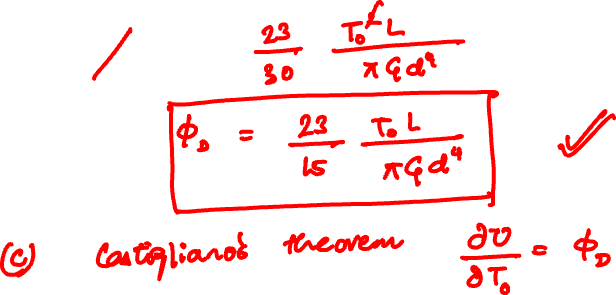 23/30 T₀² L / π G d⁴
ϕ_D = 23/15 T₀ L / π G d⁴
(c) Castigliano's theorem ∂U/∂T₀ = ϕ_D